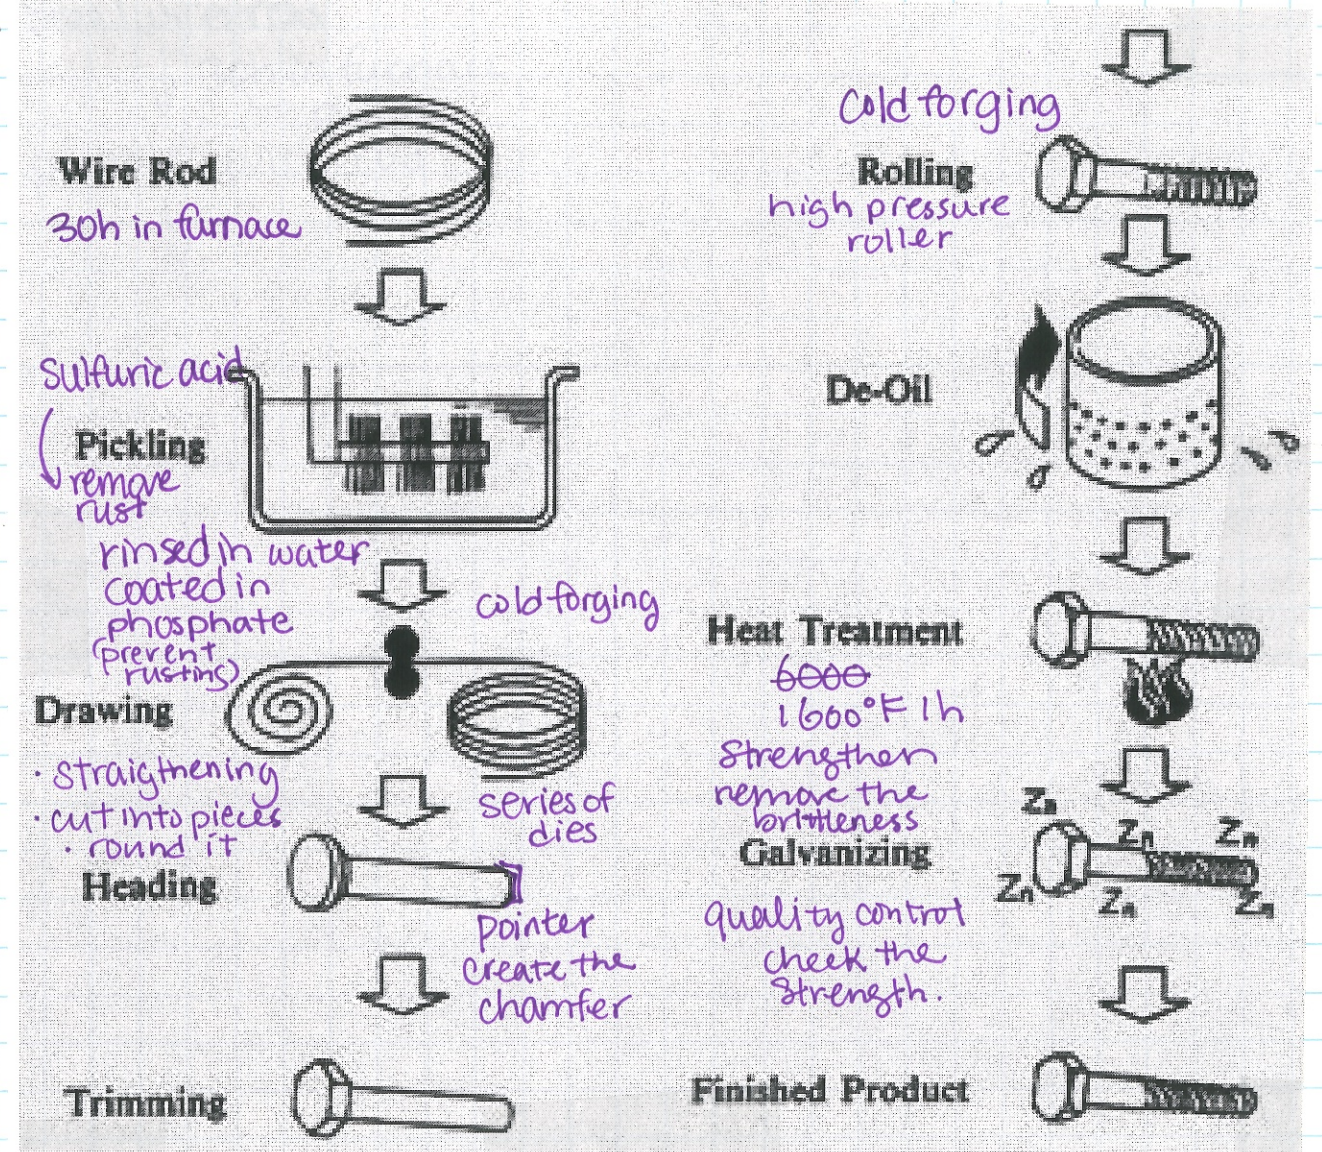 Wire Rod
30h in furnace
Sulfuric acid
Pickling
remove
rust
rinsed in water
coated in
phosphate
(prevent
rusting)
cold forging
Drawing
· straigthening
· cut into pieces
· round it
series of
dies
Heading
pointer
create the
chamfer
Trimming
cold forging
Rolling
high pressure
roller
De-Oil
Heat Treatment
6000
1600°F 1h
Strengthen
remove the
brittleness
Galvanizing
Zn
Zn Zn
Zn
Zn Zn
quality control
check the
strength.
Finished Product